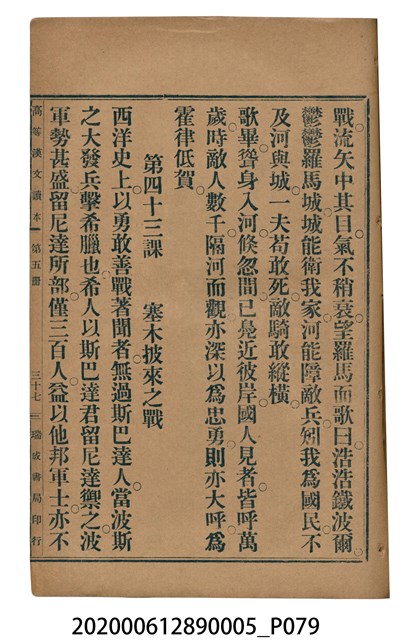 戰流矢中其目氣不稍衰望羅馬而歌曰浩浩鐵波爾
鬱鬱羅馬城城能衛我家河能障敵兵矧我為國民不
及河與城一夫苟敢死敵騎敢縱橫
歌畢聳身入河倏忽間已鳧近彼岸國人見者皆呼萬
歲時敵人數千隔河而觀亦深以為忠勇則亦大呼為
霍律低賀
第四十三課 塞木披來之戰
西洋史上以勇敢善戰著聞者無過斯巴達人當波斯
之大發兵擊希臘也希人以斯巴達君留尼達禦之波
軍勢甚盛留尼達所部僅三百人益以他邦軍士亦不
高等漢文讀本 第五冊 三十七 瑞成書局印行
202000612890005_P079